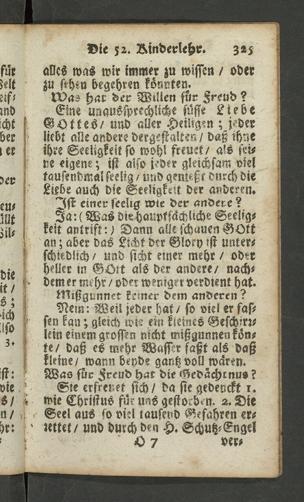 Die 52. Kinderlehr. 325
alles was wir immer zu wissen / oder
zu sehen begehren könnten.
Was hat der Willen für Freud?
Eine unaussprechliche süsse Liebe
GOttes / und aller Heiligen; jeder
liebt alle andere dergestalten / daß ihne
ihre Seeligkeit so wohl freuet / als sei-
ne eigene; ist also jeder gleichsam viel
tausendmal seelig / und genießt durch die
Liebe auch die Seeligkeit der anderen.
Ist einer seelig wie der andere?
Ja: (Was die hauptsächliche Seelig-
keit antrift:) Dann alle schauen GOtt
an; aber das Licht der Glory ist unter-
schiedlich / und sicht einer mehr / oder
heller in GOtt als der andere / nach-
dem er mehr / oder weniger verdient hat.
Mißgunnet keiner dem anderen?
Nein: Weil jeder hat / so viel er fas-
sen kan; gleich wie ein kleines Geschirr-
lein einem grossen nicht mißgunnen kön-
te / daß es mehr Wasser faßt als daß
kleine / wann beyde gantz voll wären.
Was für Freud hat die Gedächtnus?
Sie erfreuet sich / da sie gedenckt 1.
wie Christus für uns gestorben. 2. Die
Seel aus so viel tausend Gefahren er-
rettet / und durch den H. Schutz-Engel
O 7 ver-